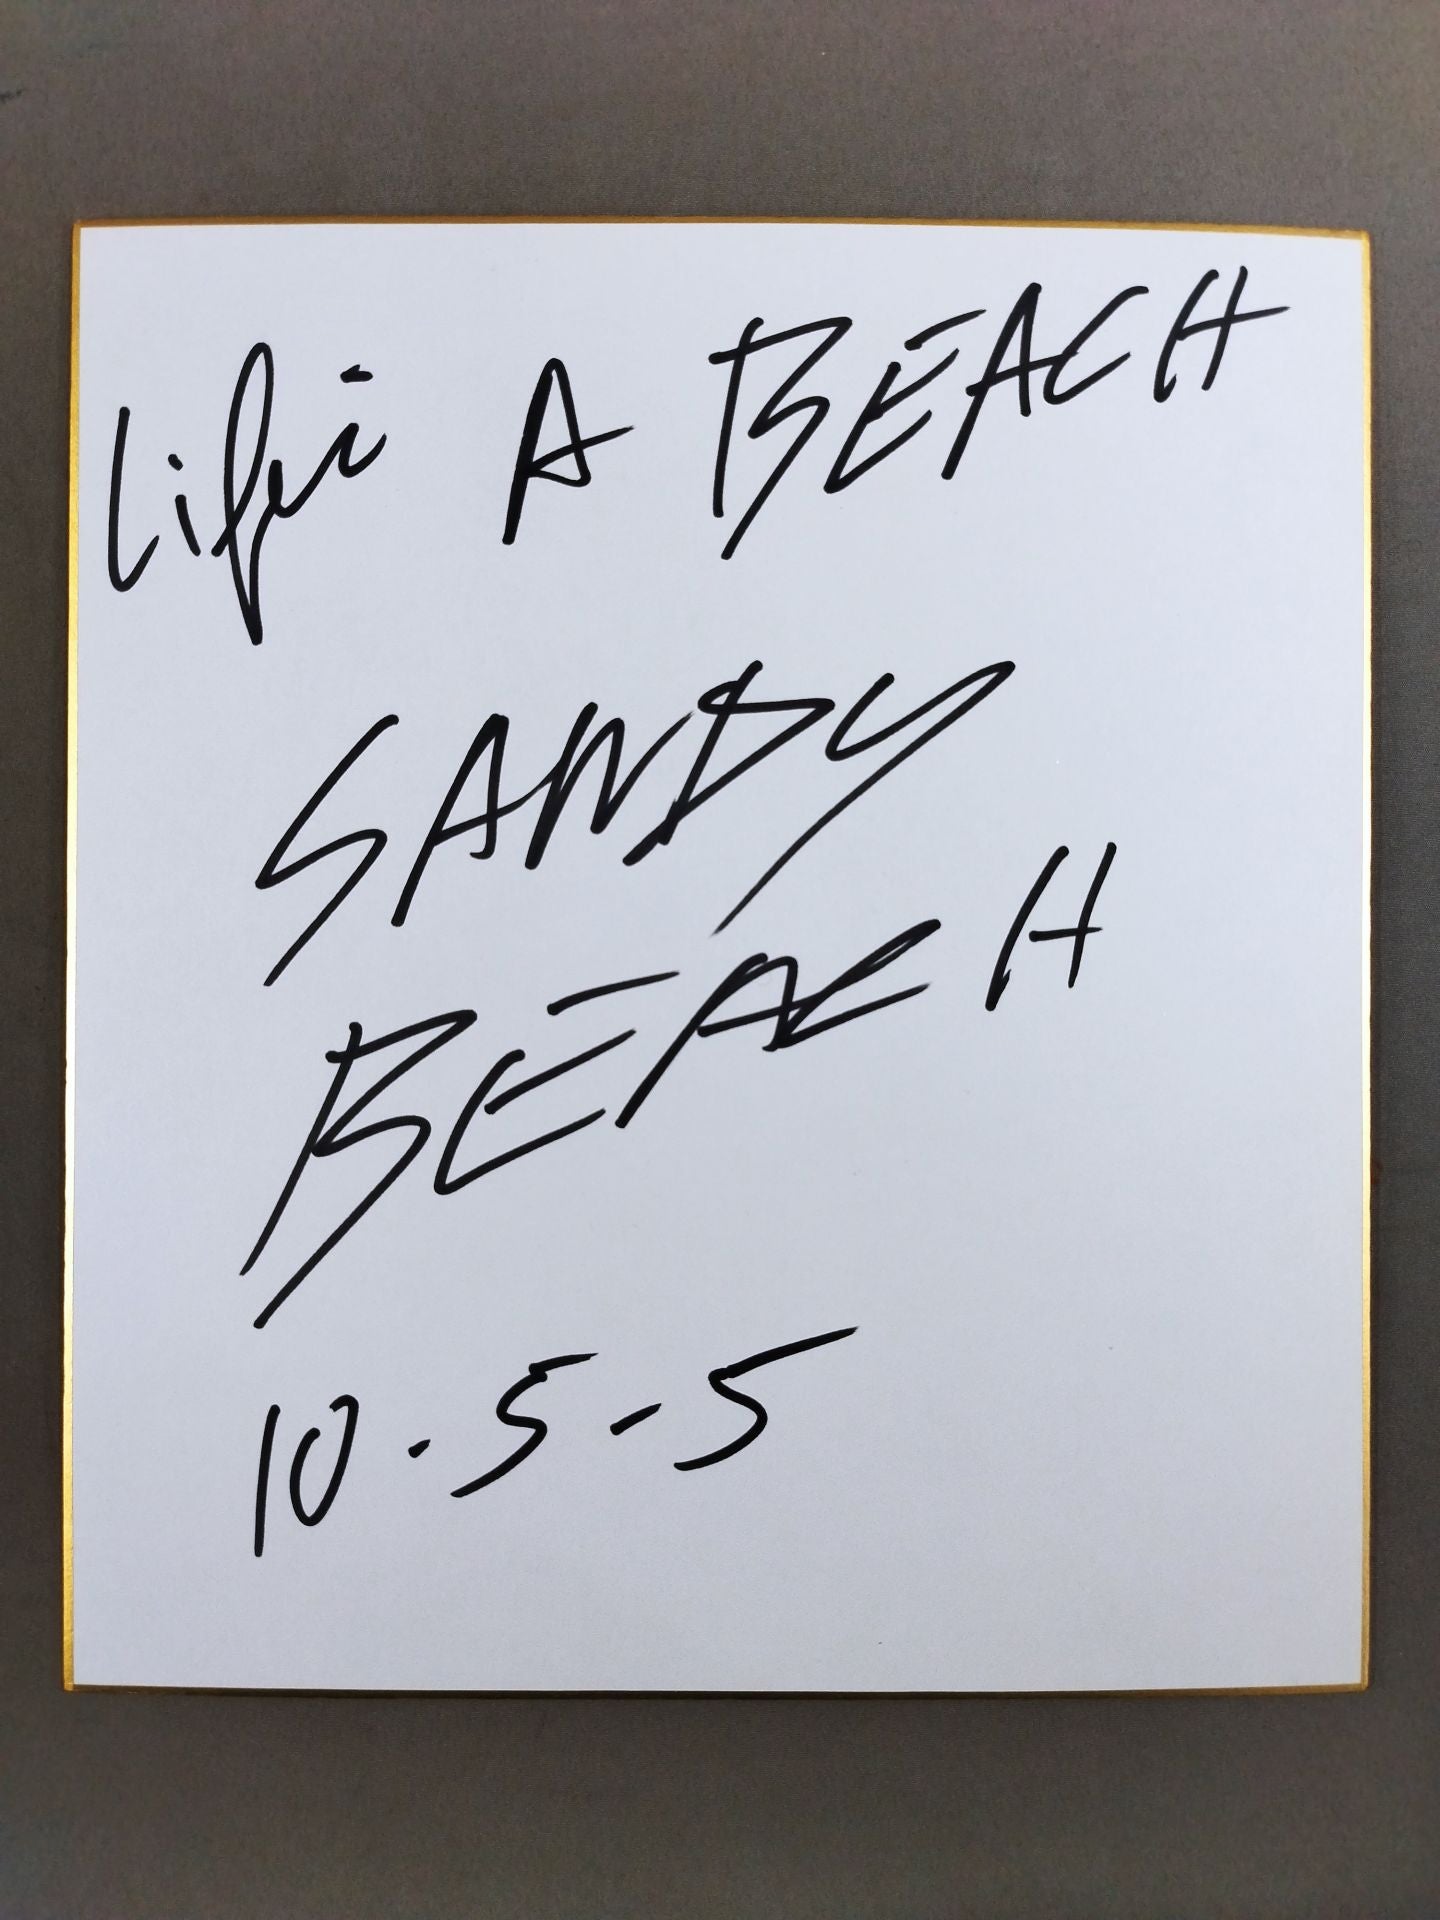 Life's A BEACH
SANDY
BEACH
10.5-5